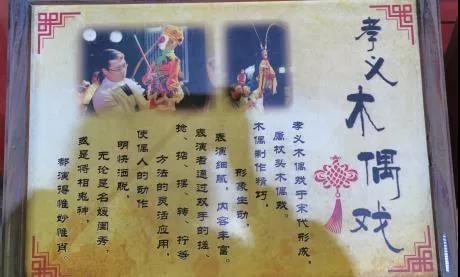 孝义木偶戏
孝义木偶戏于宋代形成，
属杖头木偶戏。
木偶制作精巧，
形象生动，
表演细腻，内容丰富。
表演者通过双手的搓、
捻、掂、摆、转、拧等
方法的灵活应用，
使偶人的动作
明快洒脱，
无论是名媛闺秀，
或是将相鬼神，
都演得惟妙惟肖。